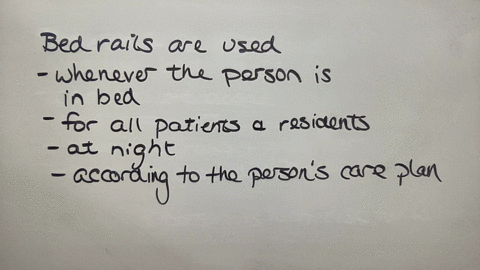 Bed rails are used
- whenever the person is
in bed
- for all patients & residents
- at night
- according to the person's care plan